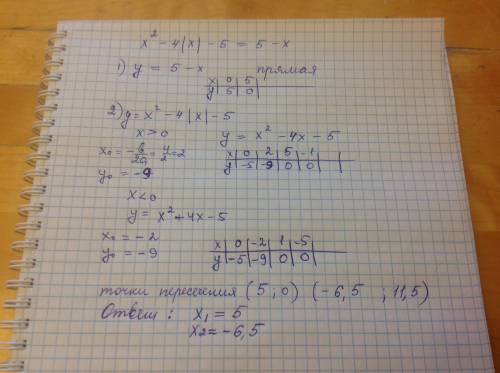 x² - 4|x| - 5 = 5 - x
1) y = 5 - x прямая
x | 0 | 5
y | 5 | 0
2) y = x² - 4|x| - 5
x > 0 y = x² - 4x - 5
x₀ = -b/2a = 4/2 = 2
x | 0 | 2 | 5 | -1
y | -5 | -9 | 0 | 0
y₀ = -9
x < 0
y = x² + 4x - 5
x₀ = -2
x | 0 | -2 | 1 | -5
y | -5 | -9 | 0 | 0
y₀ = -9
точки пересечения (5 ; 0) (-6,5 ; 11,5)
Ответ : x₁ = 5
x₂ = -6,5